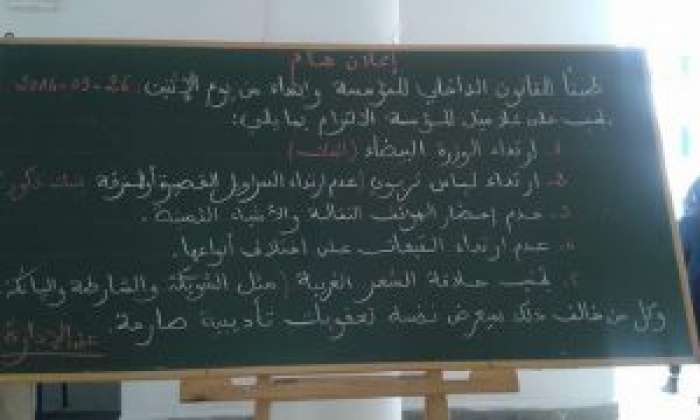 إعلان هام
طبقا للقانون الداخلي للمؤسسة وابتداء من يوم الإثنين: 2014-05-26
يجب على تلاميذ المؤسسة الالتزام بما يلي:
1. ارتداء الوزرة البيضاء
2. ارتداء لباس تربوي (عدم ارتداء السراويل القصيرة أو الممزقة
3. عدم إحضار الهواتف النقالة والأشياء الثمينة.
4. عدم ارتداء القبعات على اختلاف أنواعها.
5. تجنب حلاقة الشعر الغريبة (مثل الشويكة والشارطة
وكل من خالف ذلك يعرض نفسه لعقوبات تأديبية صارمة. عن الإدارة